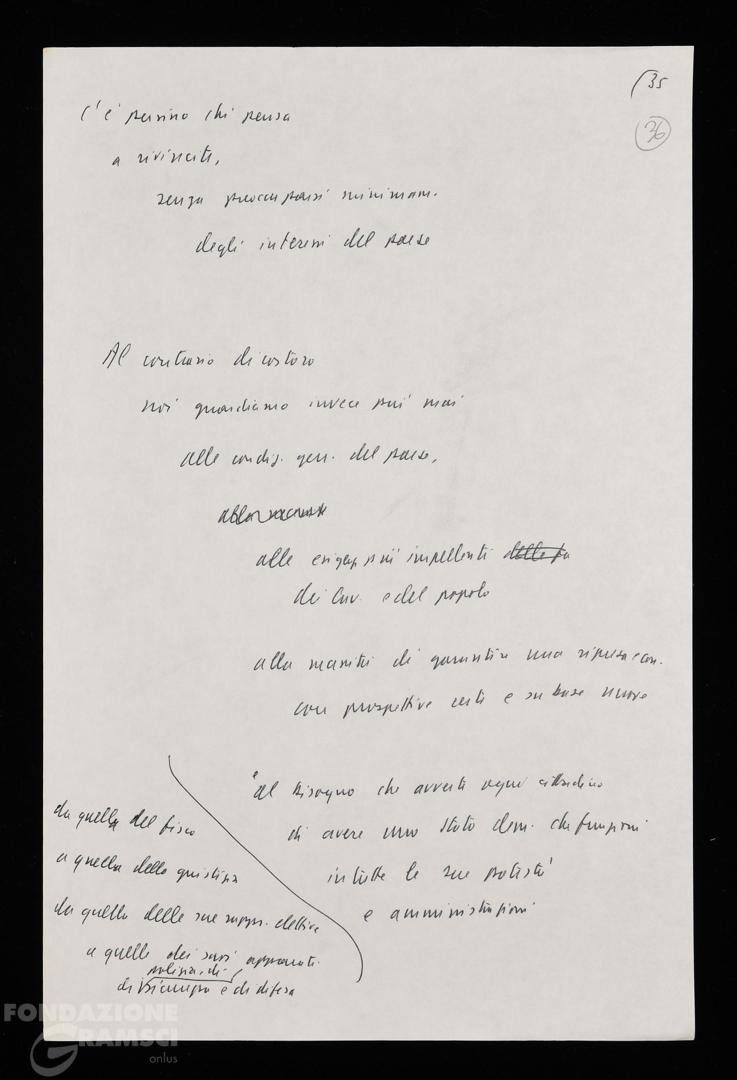 35
36
C'è persino chi pensa
a rivincite,
senza preoccuparsi minimam.
degli interessi del paese
Al contrario di costoro
noi guardiamo invece più mai
alle condiz. gen. del paese,
alla necessità
alle esigenze più impellenti della
dei lav. e del popolo
alla necessità di garantire una ripresa econ.
con prospettive certe e su base nuove
al bisogno che avverte ogni cittadino
di avere uno Stato dem. che funzioni
in tutte le sue potestà
e amministrazioni
da quella del fisco
a quella della giustizia
da quelle delle sue rappr. elettive
a quelle dei suoi apparati
polizia, di
di sicurezza e di difesa
FONDAZIONE
GRAMSCI
onlus